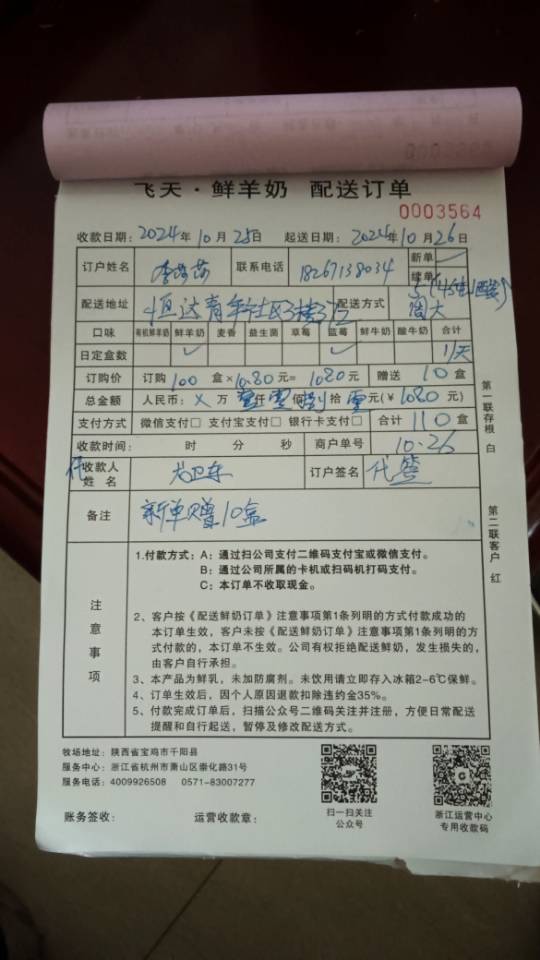 飞天·鲜羊奶 配送订单
0003564
收款日期：2024年10月25日 起送日期：2024年10月26日
订户姓名 联系电话 18267138034 新单 ✓
续单
配送地址 恒达青年社区3楼 配送方式 周六
口味 有机鲜羊奶 鲜羊奶 麦香 益生菌 草莓 蓝莓 鲜牛奶 酸牛奶 合计
日定盒数 ✓ ✓ 1/天
订购价 订购100盒×10.80元=1080元 赠送10盒
总金额 人民币：X万壹仟零佰捌拾零元(￥1080元)
支付方式 微信支付□ 支付宝支付□ 银行卡支付□ 合计110盒
收款时间： 时 分 秒 商户单号 10.26
代收款人
姓名 订户签名 代签
备注 新单赠10盒
注意事项
1.付款方式：A：通过扫公司支付二维码支付宝或微信支付。
B：通过公司所属的卡机或扫码机打码支付。
C：本订单不收取现金。
2、客户按《配送鲜奶订单》注意事项第1条列明的方式付款成功的
本订单生效，客户未按《配送鲜奶订单》注意事项第1条列明的方
式付款的，本订单不生效。公司有权拒绝配送鲜奶，发生损失的，
由客户自行承担。
3、本产品为鲜乳，未加防腐剂。未饮用请立即存入冰箱2-6℃保鲜。
4、订单生效后，因个人原因退款扣除违约金35%。
5、付款完成订单后，扫描公众号二维码关注并注册，方便日常配送
提醒和自行起送，暂停及修改配送方式。
第一联存根 白
第二联客户 红
牧场地址：陕西省宝鸡市千阳县
服务中心：浙江省杭州市萧山区崇化路31号
服务电话：4009926508 0571-83007277
扫一扫关注
公众号
浙江运营中心
专用收款码
账务签收： 运营收款章：